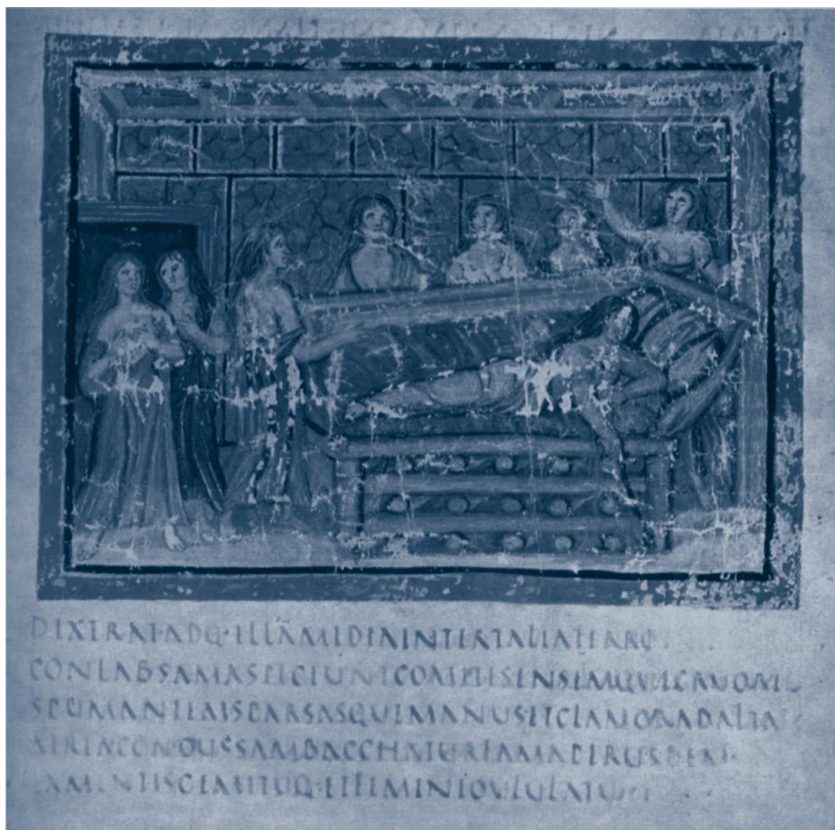 DIXERATADQ·ILLAMEDIAINTERTALIAFERRO
CONLABSAMASPICIUNTCOMITESENSEMQUECRUORE
SPUMANTEMSPARSASQUEMANUSITCLAMORADALTA
ATRIACONCUSSAMBACCHATURFAMAPER
LAMENTISGEMITUQ·ETFEMINEOULULATU